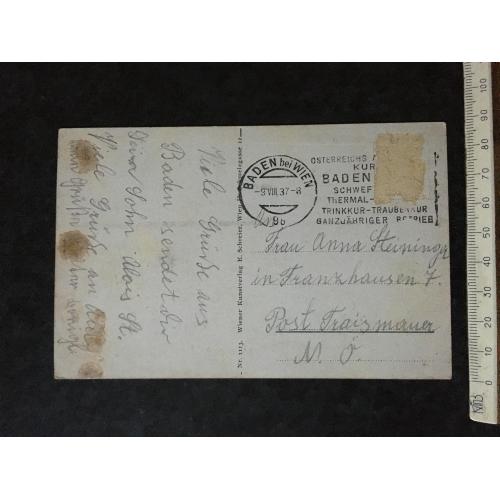 Viele Grüße aus
Baden sendet dir
Dein Sohn Alois St.
Viele Grüße an
- Nr. 1113. Wiener Kunstverlag E. Schreier, Wien
BADEN bei WIEN
-9.VIII.37-8
ÖSTERREICHS
KUR
BADEN
SCHWEF
THERMAL-
TRINKKUR-TRAUBENKUR
GANZJÄHRIGER BETRIEB
Frau Anna Steining
in Franzhausen 7.
Post Traismauer
N. Ö.
100
90
80
70
60
50
40
30
20
10
0